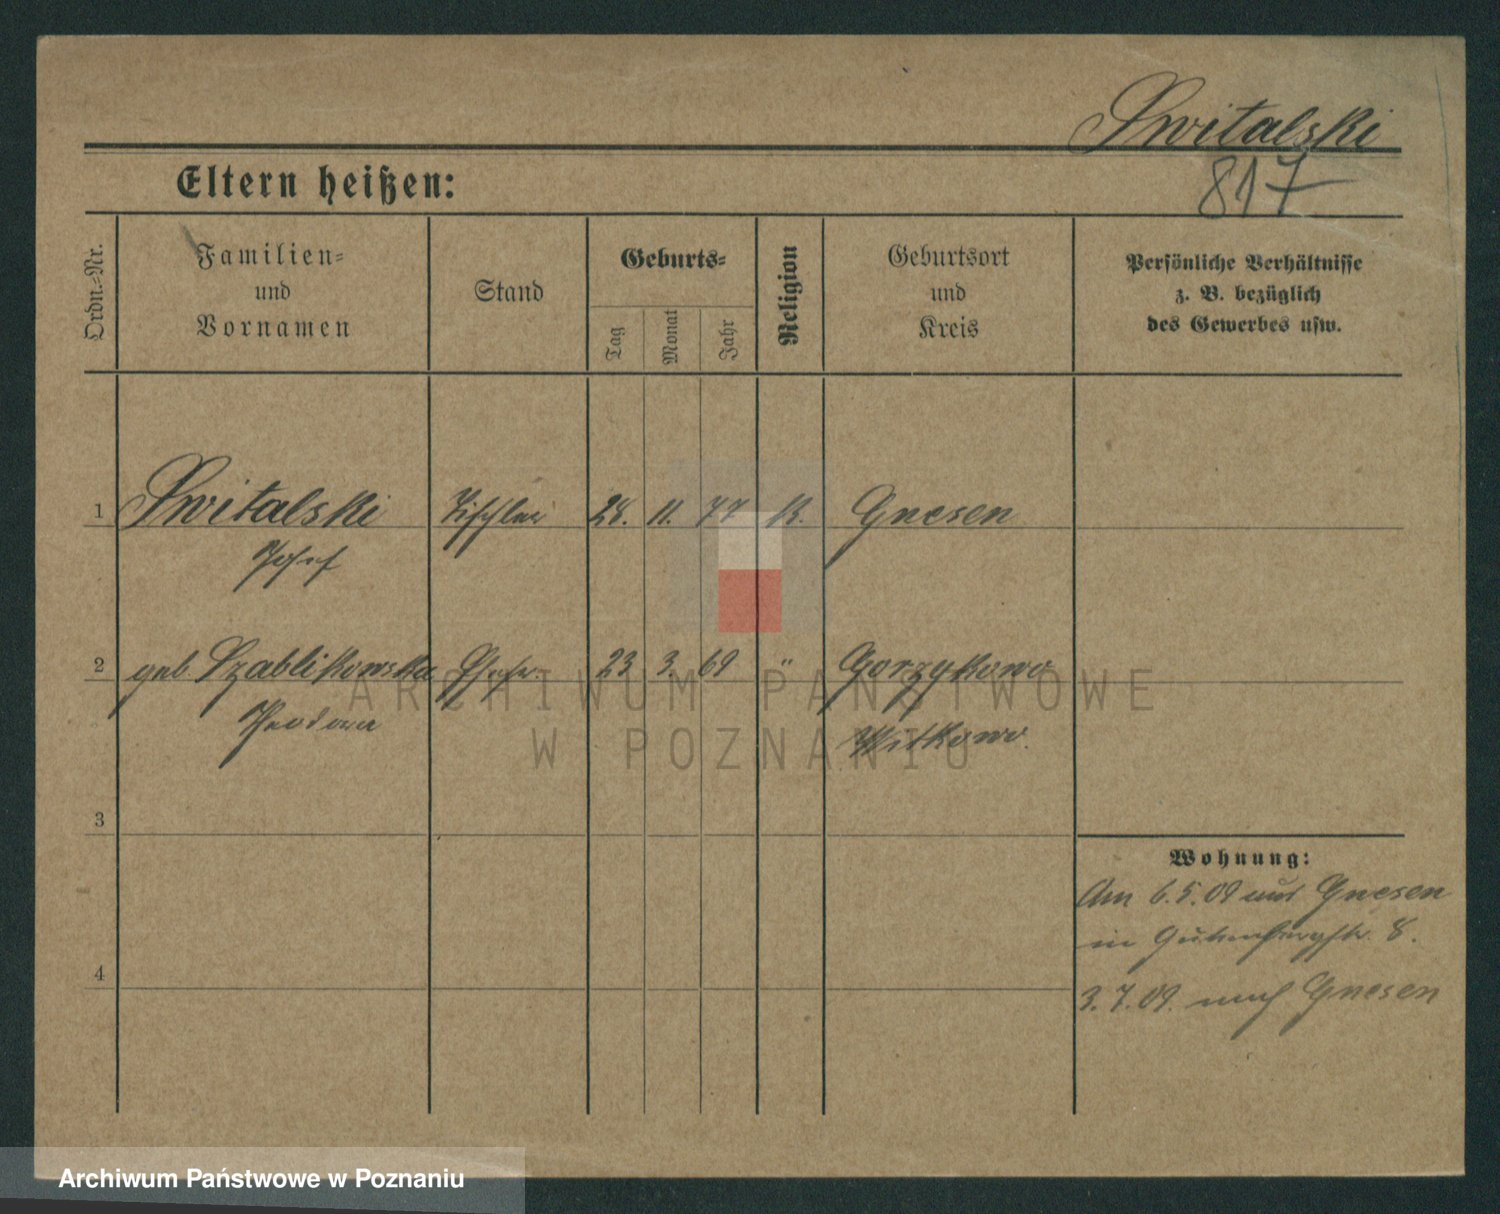 Switalski
817
Eltern heißen:
Ordn.-Nr.
Familien-
und
Vornamen
Stand
Geburts-
Tag
Monat
Jahr
Religion
Geburtsort
und
Kreis
Persönliche Verhältnisse
z. B. bezüglich
des Gewerbes usw.
1 Switalski Tischler 28. 11. 77 K. Gnesen
Josef
2 geb Szablikowska Ehefr. 23 3. 69 " Gorzykowo
Theodora Witkowo.
3
Wohnung:
Am 6.5.09 aus Gnesen
in Gutenbergstr. 8.
4
3.7.09. nach Gnesen
ARCHIWUM PAŃSTWOWE
W POZNANIU
Archiwum Państwowe w Poznaniu